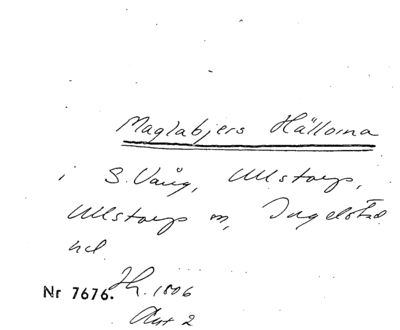 Maglabjers Hällorna
i S. Vång, Ullstorps,
Ullstorps sn, Ingelstad
hd.
Nr 7676. Jh. 1806
Akt 2